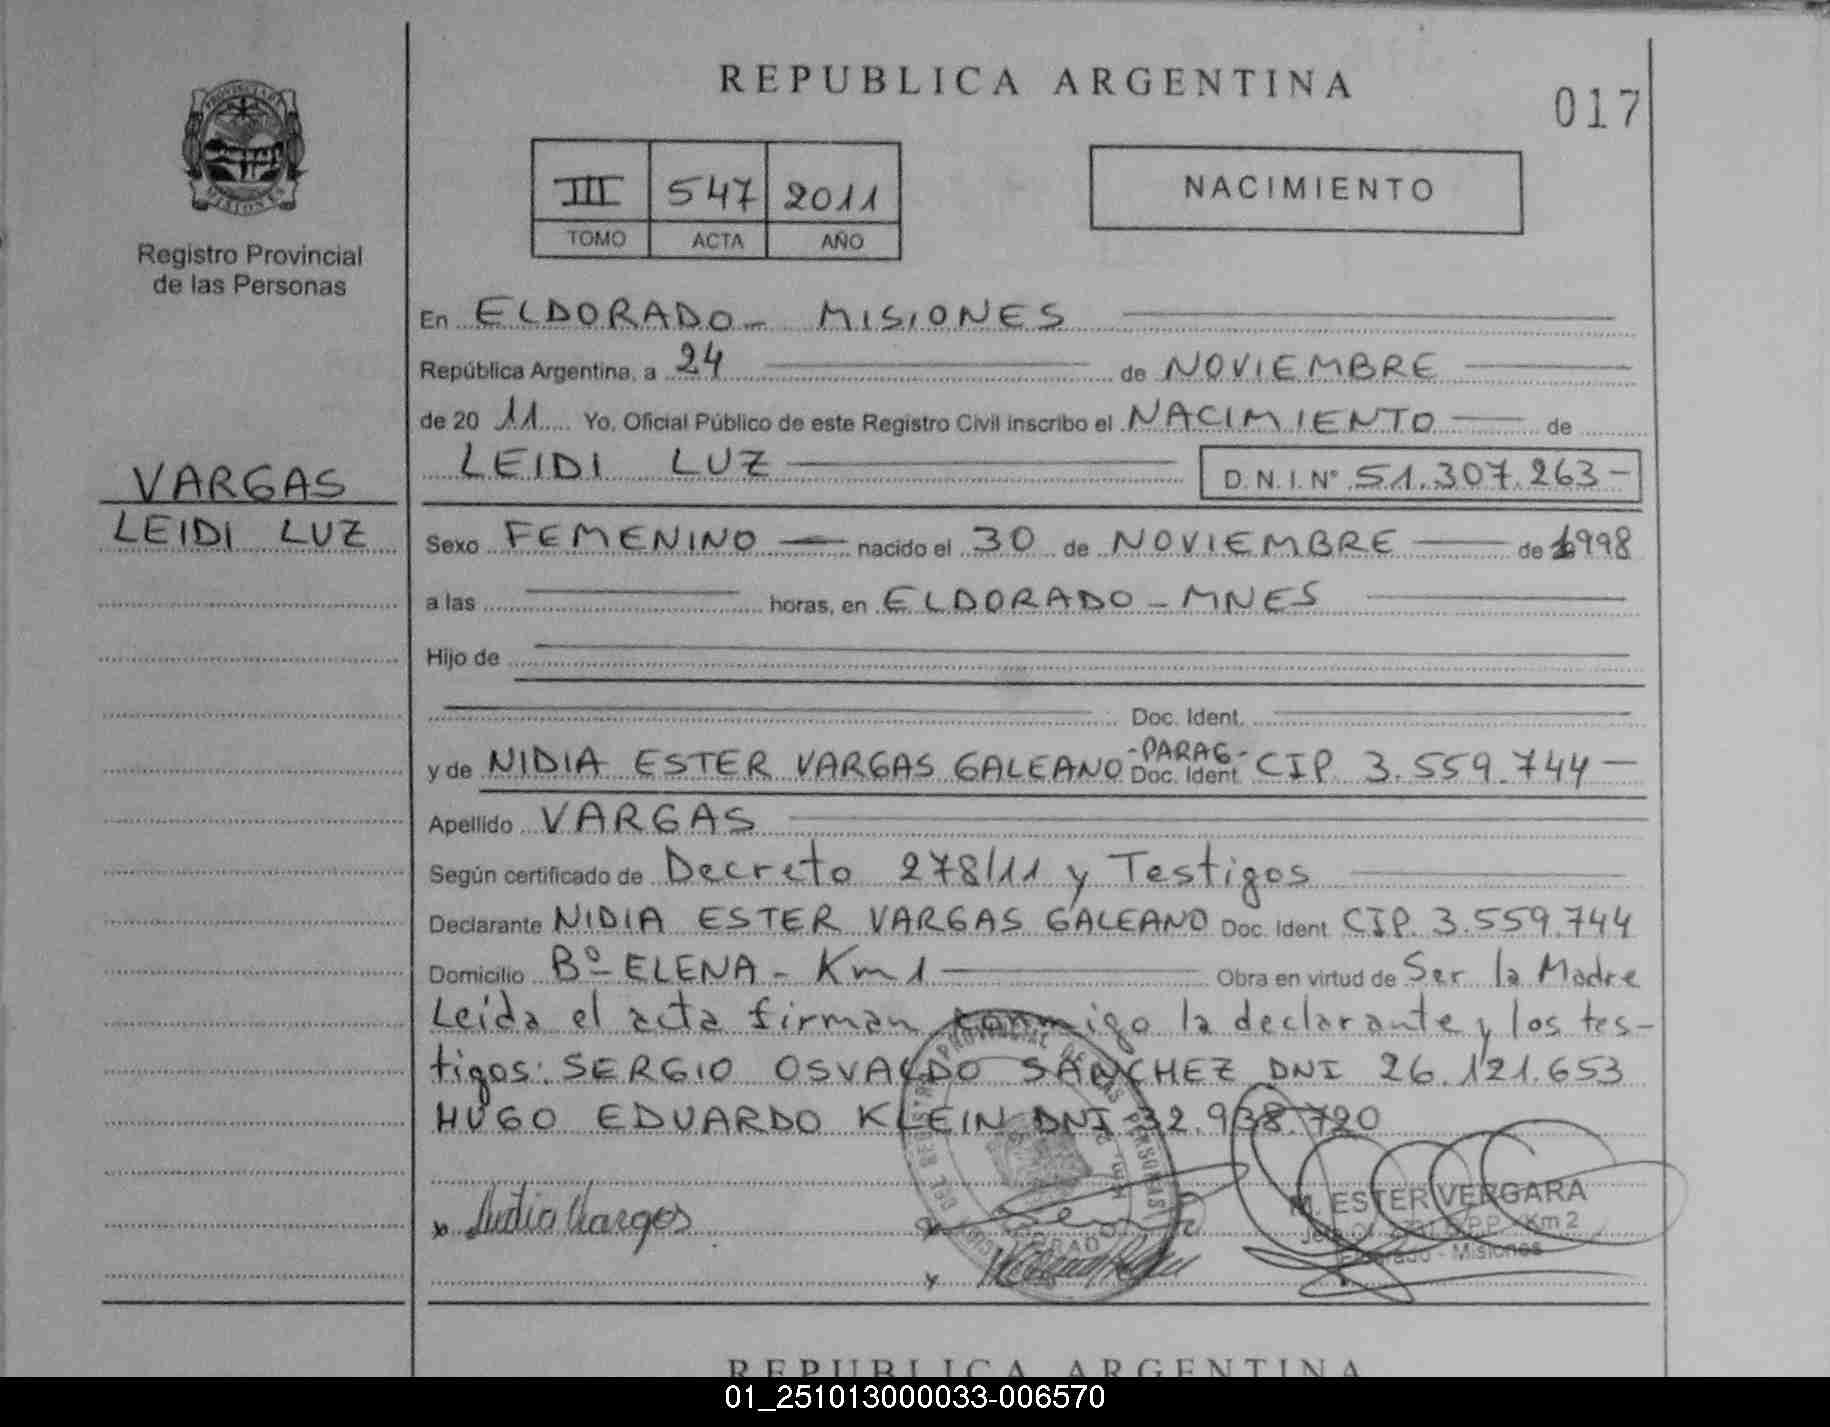 REPUBLICA ARGENTINA
017
PROVINCIA DE MISIONES
Registro Provincial
de las Personas
III 547 2011
TOMO ACTA AÑO
NACIMIENTO
En ELDORADO - MISIONES
República Argentina, a 24 de NOVIEMBRE
de 20 11 Yo, Oficial Público de este Registro Civil inscribo el NACIMIENTO de
LEIDI LUZ D.N.I.Nº 51.307.263-
VARGAS
LEIDI LUZ
Sexo FEMENINO nacido el 30 de NOVIEMBRE de 1998
a las horas, en ELDORADO - MNES
Hijo de
Doc. Ident.
y de NIDIA ESTER VARGAS GALEANO -PARAG- Doc. Ident. CIP 3.559.744
Apellido VARGAS
Según certificado de Decreto 278/11 y Testigos
Declarante NIDIA ESTER VARGAS GALEANO Doc. Ident. CIP. 3.559.744
Domicilio Bº ELENA - Km 1 Obra en virtud de Ser la Madre
Leída el acta firman conmigo la declarante y los tes-
tigos: SERGIO OSVALDO SANCHEZ DNI 26.121.653
HUGO EDUARDO KLEIN DNI 32.938.720
x Nidia Vargas
M. ESTER VERGARA
Km 2
Eldorado - Misiones
REPUBLICA ARGENTINA
01_251013000033-006570